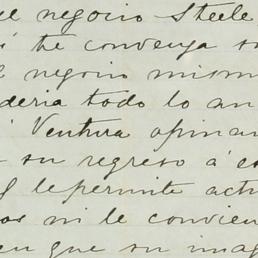 negocio Steele
te convenga
negocio mism
deria todo lo an
Ventura opinan
su regreso á es
le permite act
os ni le convien
en que su imag